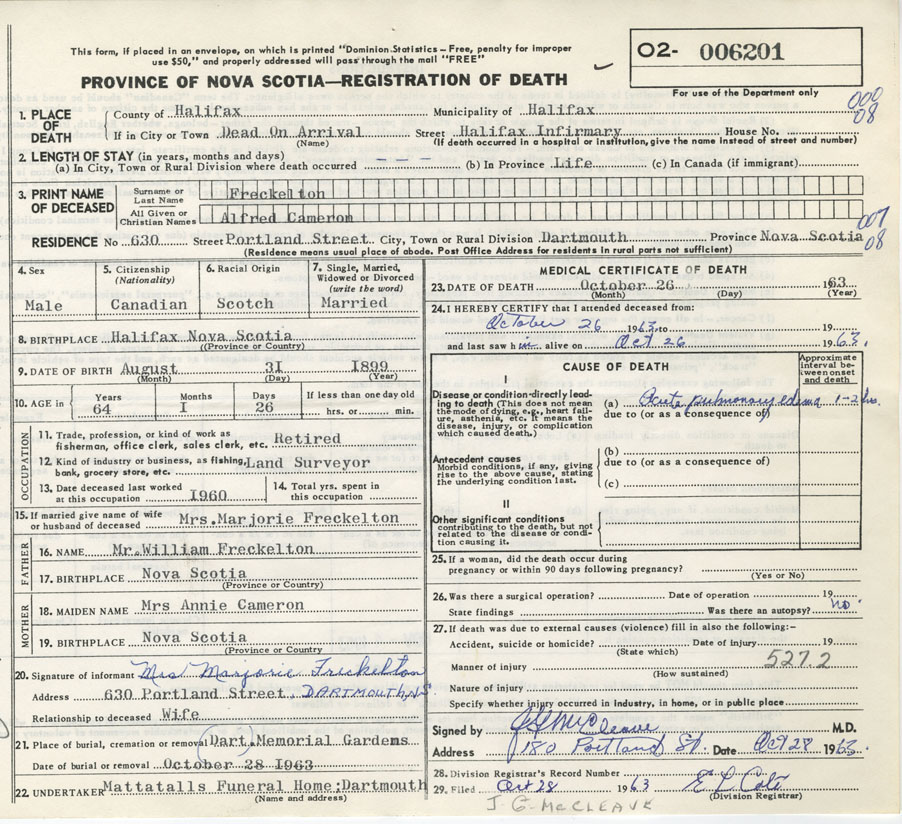 This form, if placed in an envelope, on which is printed "Dominion Statistics – Free, penalty for improper
use $50," and properly addressed will pass through the mail "FREE"
O2- 006201
For use of the Department only
PROVINCE OF NOVA SCOTIA—REGISTRATION OF DEATH
000
08
1. PLACE OF DEATH
County of Halifax Municipality of Halifax
If in City or Town Dead On Arrival Street Halifax Infirmary House No.
(Name) (If death occurred in a hospital or institution, give the name instead of street and number)
2. LENGTH OF STAY (in years, months and days)
(a) In City, Town or Rural Division where death occurred - - - (b) In Province Life (c) In Canada (if immigrant)
3. PRINT NAME OF DECEASED
Surname or Last Name Freckelton
All Given or Christian Names Alfred Cameron
007
08
RESIDENCE No 630 Street Portland Street City, Town or Rural Division Dartmouth Province Nova Scotia
(Residence means usual place of abode. Post Office Address for residents in rural parts not sufficient)
4. Sex
Male
5. Citizenship
(Nationality)
Canadian
6. Racial Origin
Scotch
7. Single, Married,
Widowed or Divorced
(write the word)
Married
8. BIRTHPLACE Halifax Nova Scotia
(Province or Country)
9. DATE OF BIRTH August 3I I899
(Month) (Day) (Year)
10. AGE in
Years Months Days If less than one day old
64 I 26 hrs. or min.
OCCUPATION
11. Trade, profession, or kind of work as
fisherman, office clerk, sales clerk, etc. Retired
12. Kind of industry or business, as fishing,
bank, grocery store, etc. Land Surveyor
13. Date deceased last worked
at this occupation I960
14. Total yrs. spent in
this occupation
15. If married give name of wife
or husband of deceased Mrs.Marjorie Freckelton
FATHER
16. NAME Mr.William Freckelton
17. BIRTHPLACE Nova Scotia
(Province or Country)
MOTHER
18. MAIDEN NAME Mrs Annie Cameron
19. BIRTHPLACE Nova Scotia
(Province or Country)
20. Signature of informant Mrs Marjorie Freckelton
Address 630 Portland Street, DARTMOUTH, NS
Relationship to deceased Wife
21. Place of burial, cremation or removal Dart. Memorial Gardens
Date of burial or removal October 28 I963
22. UNDERTAKER Mattatalls Funeral Home:Dartmouth
(Name and address)
MEDICAL CERTIFICATE OF DEATH
23. DATE OF DEATH October 26 1963
(Month) (Day) (Year)
24. I HEREBY CERTIFY that I attended deceased from:
October 26 1963 to 19
and last saw him alive on Oct 26 1963.
CAUSE OF DEATH
Approximate
interval be-
tween onset
and death
I
Disease or condition directly lead-
ing to death (This does not mean
the mode of dying, e.g., heart fail-
ure, asthenia, etc. It means the
disease, injury, or complication
which caused death.)
(a) Acute pulmonary edema 1-2 hrs.
due to (or as a consequence of)
Antecedent causes
Morbid conditions, if any, giving
rise to the above cause, stating
the underlying condition last.
(b)
due to (or as a consequence of)
(c)
II
Other significant conditions
contributing to the death, but not
related to the disease or condi-
tion causing it.
25. If a woman, did the death occur during
pregnancy or within 90 days following pregnancy?
(Yes or No)
26. Was there a surgical operation? Date of operation 19
State findings Was there an autopsy? no
27. If death was due to external causes (violence) fill in also the following:-
Accident, suicide or homicide? Date of injury 19
(State which)
527.2
Manner of injury
(How sustained)
Nature of injury
Specify whether injury occurred in industry, in home, or in public place
Signed by J G McCleave M.D.
Address 180 Portland St. Date Oct 28 1963.
28. Division Registrar's Record Number
29. Filed Oct 28 1963
(Division Registrar)
J G McCLEAVE